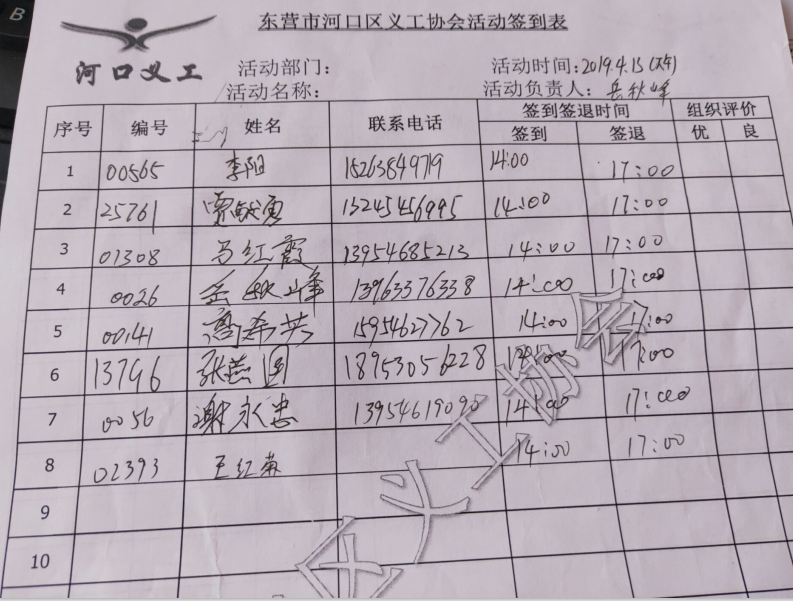 B
东营市河口区义工协会活动签到表
河口义工
活动部门: 活动时间:2019.4.15(下午)
活动名称: 活动负责人: 岳秋峰
序号 编号 姓名 联系电话 签到签退时间 组织评价
签到 签退 优 良
1 00565 李阳 15263849719 14:00 17:00
2 25761 贾 13245456995 14:00 17:00
3 01308 马红霞 13954685213 14:00 17:00
4 0026 岳秋峰 13963376338 14:00 17:00
5 00141 高希芸 15954627762 14:00 17:00
6 13796 张燕圆 18953056228 14:00 17:00
7 0056 谢永忠 13954619090 14:00 17:00
8 02393 王红菊 14:00 17:00
9
10